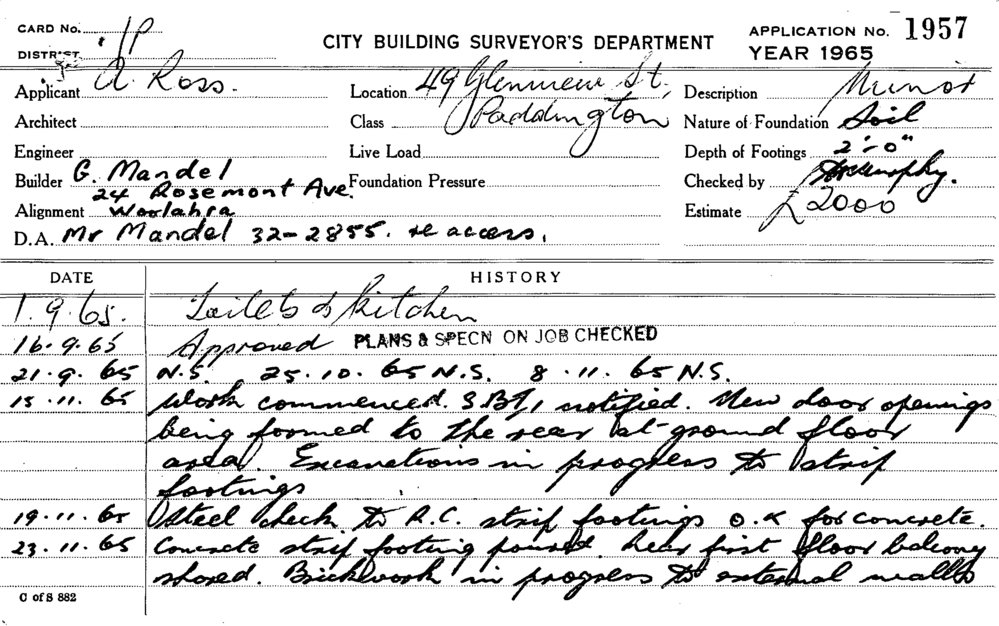 CARD No. 1P
CITY BUILDING SURVEYOR'S DEPARTMENT
APPLICATION No. 1957
DISTRICT
YEAR 1965
Applicant A Ross.
Location 49 Glenview St,
Paddington
Description Minor
Architect
Class
Nature of Foundation Soil
Engineer
Live Load
Depth of Footings 2'-0"
Builder G. Mandel
24 Rosemont Ave.
Foundation Pressure
Checked by
Alignment Woolahra
Estimate £2000
D.A. Mr Mandel 32-2855. re access.
DATE
HISTORY
1.9.65. Toilets & Kitchen
16.9.65 Approved PLANS & SPECN ON JOB CHECKED
21.9.65 N.S. 25.10.65 N.S. 8.11.65 N.S.
15.11.65 Work commenced. notified. New door openings
being formed to the rear at ground floor
area. Excavations in progress to strip
footings
19.11.65 Steel check to R.C. strip footings O.K for concrete.
23.11.65 Concrete strip footing poured. Rear first floor balcony
shored. Brickwork in progress to external walls
C of S 882